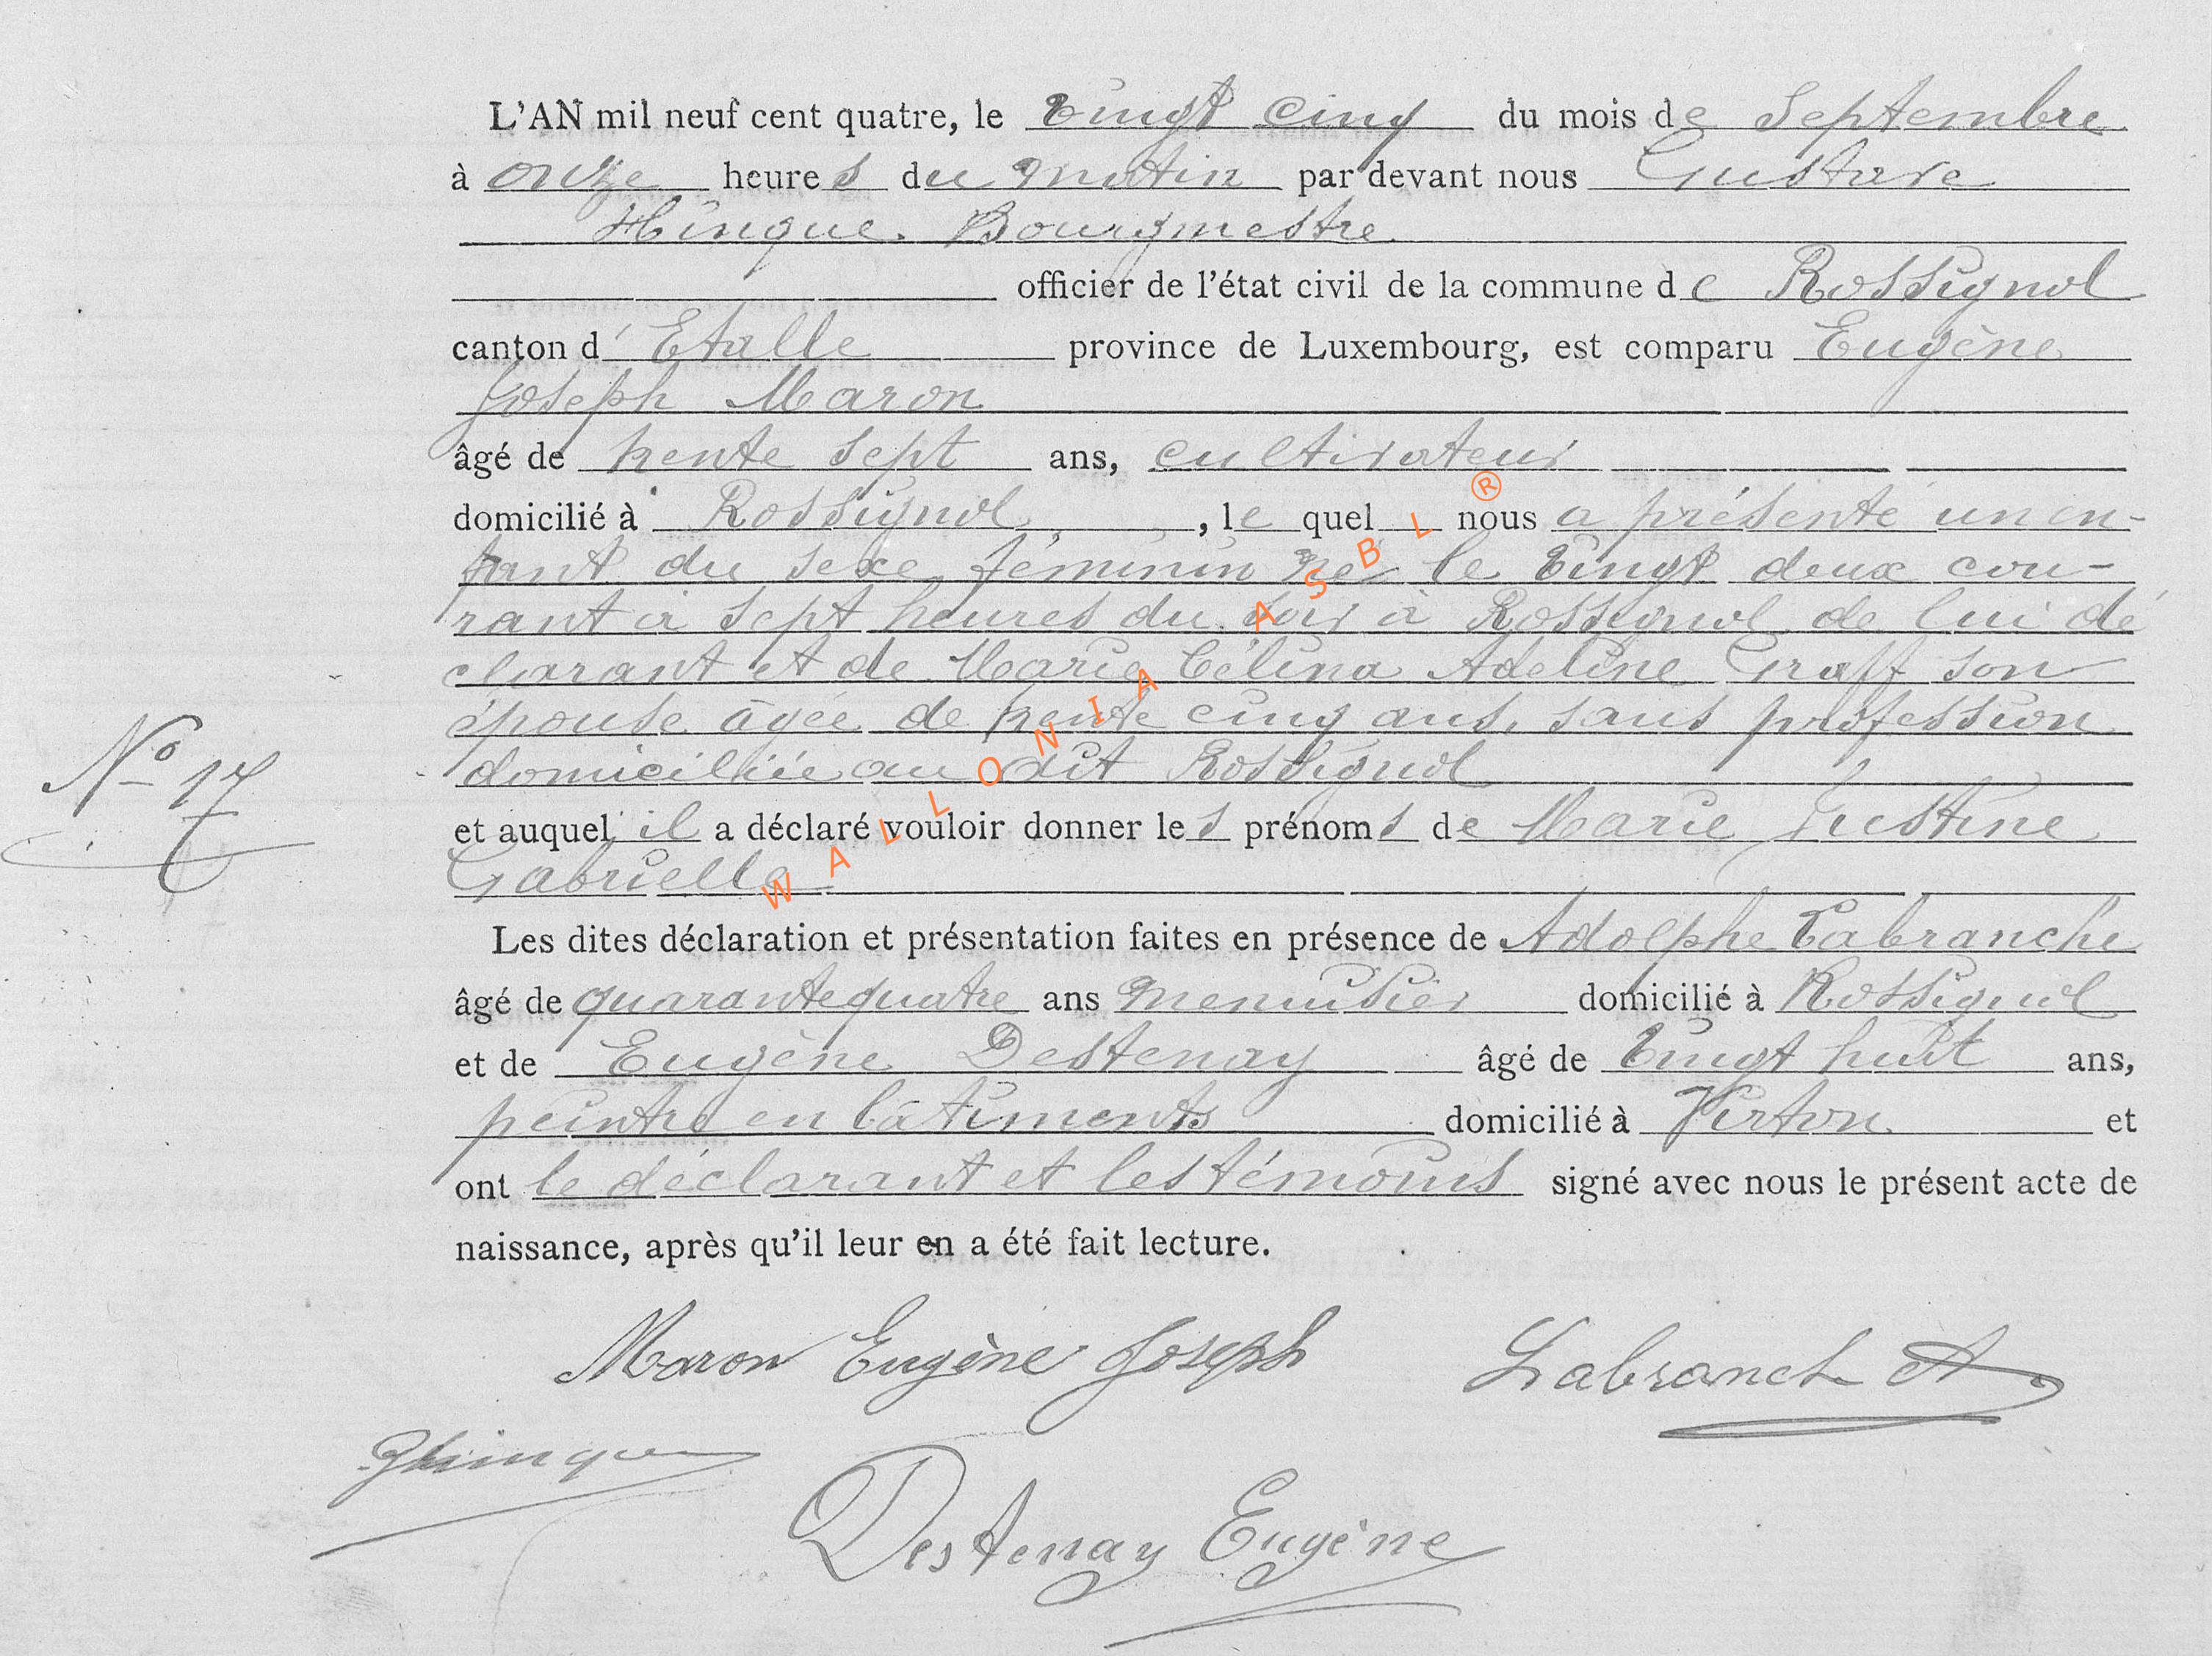 L'AN mil neuf cent quatre, le vingt cinq du mois de Septembre
à onze heures du matin par devant nous Gustave
Hinque. Bourgmestre
officier de l'état civil de la commune de Rossignol
canton d' Etalle province de Luxembourg, est comparu Eugène
Joseph Maron
âgé de trente sept ans, cultivateur
domicilié à Rossignol, le quel nous a présenté un en-
fant du sexe féminin né le vingt deux cou-
rant à sept heures du soir à Rossignol de lui dé
clarant et de Marie Célina Adeline Graff son
épouse âgée de trente cinq ans, sans profession
domiciliée au dit Rossignol
N° 17
et auquel il a déclaré vouloir donner les prénoms de Marie Justine
Gabrielle
Les dites déclaration et présentation faites en présence de Adolphe Labranche
âgé de quarante quatre ans menuisier domicilié à Rossignol
et de Eugène Destenay âgé de vingt huit ans,
peintre en bâtiments domicilié à Virton et
ont le déclarant et les témoins signé avec nous le présent acte de
naissance, après qu'il leur en a été fait lecture.
Maron Eugène Joseph Labranche A
GHinque
Destenay Eugène
WALLONIA ASBL ®